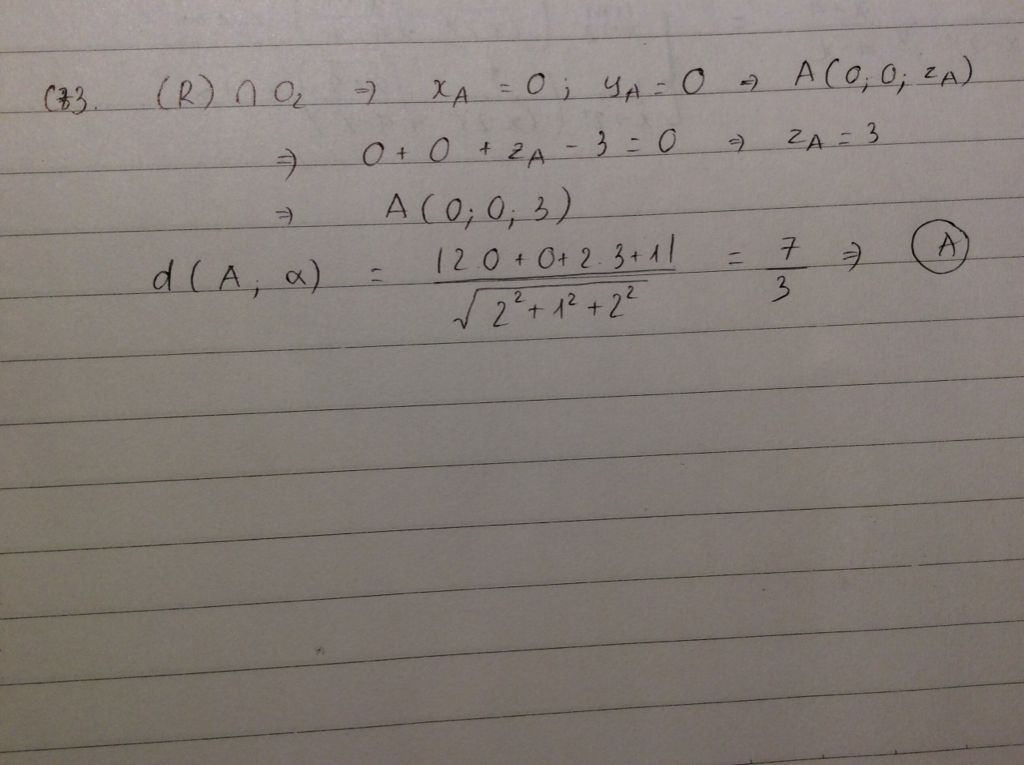 C83. (R) ∩ Oz ⇒ xA = 0; yA = 0 ⇒ A(0; 0; zA)
⇒ 0 + 0 + zA - 3 = 0 ⇒ zA = 3
⇒ A(0; 0; 3)
d(A; α) = |2.0 + 0 + 2.3 + 1| / √(2² + 1² + 2²) = 7/3 ⇒ A